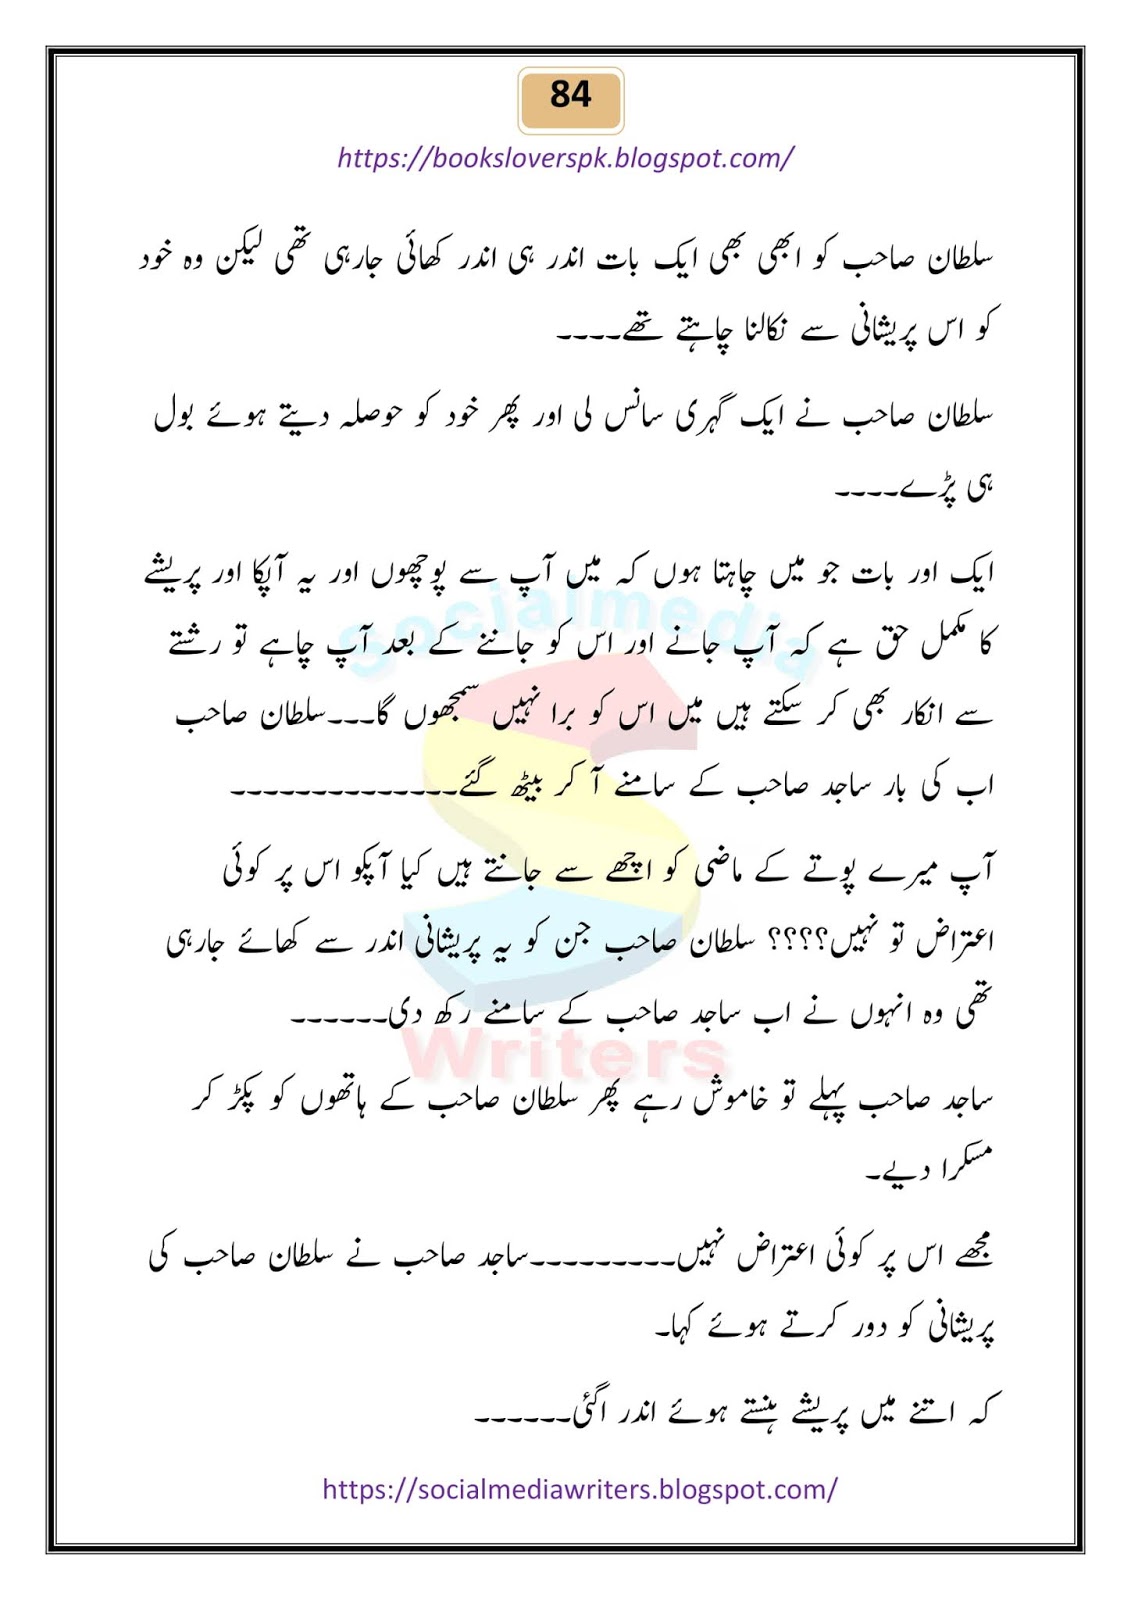 84
https://booksloverspk.blogspot.com/
سلطان صاحب کو ابھی بھی ایک بات اندر ہی اندر کھائی جارہی تھی لیکن وہ خود
کو اس پریشانی سے نکالنا چاہتے تھے۔۔۔۔
سلطان صاحب نے ایک گہری سانس لی اور پھر خود کو حوصلہ دیتے ہوئے بول
ہی پڑے۔۔۔۔
ایک اور بات جو میں چاہتا ہوں کہ میں آپ سے پوچھوں اور یہ آپکا اور پریشے
کا مکمل حق ہے کہ آپ جانے اور اس کو جاننے کے بعد آپ چاہے تو رشتے
سے انکار بھی کر سکتے ہیں میں اس کو برا نہیں سمجھوں گا۔۔۔سلطان صاحب
اب کی بار ساجد صاحب کے سامنے آ کر بیٹھ گئے۔۔۔۔۔۔۔۔۔۔۔۔۔۔
آپ میرے پوتے کے ماضی کو اچھے سے جانتے ہیں کیا آپکو اس پر کوئی
اعتراض تو نہیں؟؟؟؟ سلطان صاحب جن کو یہ پریشانی اندر سے کھائے جارہی
تھی وہ انہوں نے اب ساجد صاحب کے سامنے رکھ دی۔۔۔۔۔۔
ساجد صاحب پہلے تو خاموش رہے پھر سلطان صاحب کے ہاتھوں کو پکڑ کر
مسکرا دیے۔
مجھے اس پر کوئی اعتراض نہیں۔۔۔۔۔۔۔۔۔ساجد صاحب نے سلطان صاحب کی
پریشانی کو دور کرتے ہوئے کہا۔
کہ اتنے میں پریشے ہنستے ہوئے اندر اگئی۔۔۔۔۔۔
Socialmedia
Writers
https://socialmediawriters.blogspot.com/